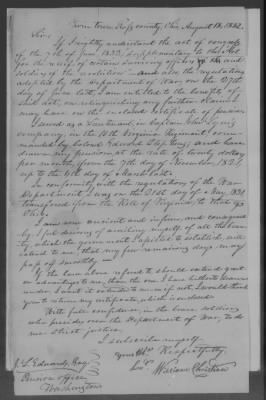 county, Ohio, August 13, 1832.
Sir,
If I rightly understand the act of congress
of the 7th of June, 1832, supplementary to the "Act
for the relief of certain surviving officers and
soldiers of the revolution" and also, the regulations
adopted by the Department of War, on the 27th
day of June last, I am entitled to the benefits of
said act, on relinquishing any further claim I
may have on the enclosed certificate of pension.
I served as a Lieutenant, in Captain
company, in the 10th Virginia Regiment, com-
manded by Colonel Edward Stephens; and have
drawn my pension, at the rate of twenty dollars
per month, from the 7th day of November, 1828
up to the 4th day of March last.
In conformity with the regulations of the War
Department, I was on the 31st day of May, 1831
transferred from the Roll of Virginia, to that of
Ohio.
I am now ancient and infirm, and consequent-
ly feel desirous of availing myself of all the
by which the government
to me, that my few remaining days may
pass off smoothly.
If the law alone refered to should extend great-
er advantages to me, than the one I have hitherto
under, I want it extended to me; if not, I would thank
you to return my certificate, which is enclosed.
With full confidence, in the brave soldier,
who presides over the Department of War, to do
me strict justice,
I subscribe myself,
Yours Respectfully
William Christian
J. L. Edwards, Esq.
Pension Office,
Washington